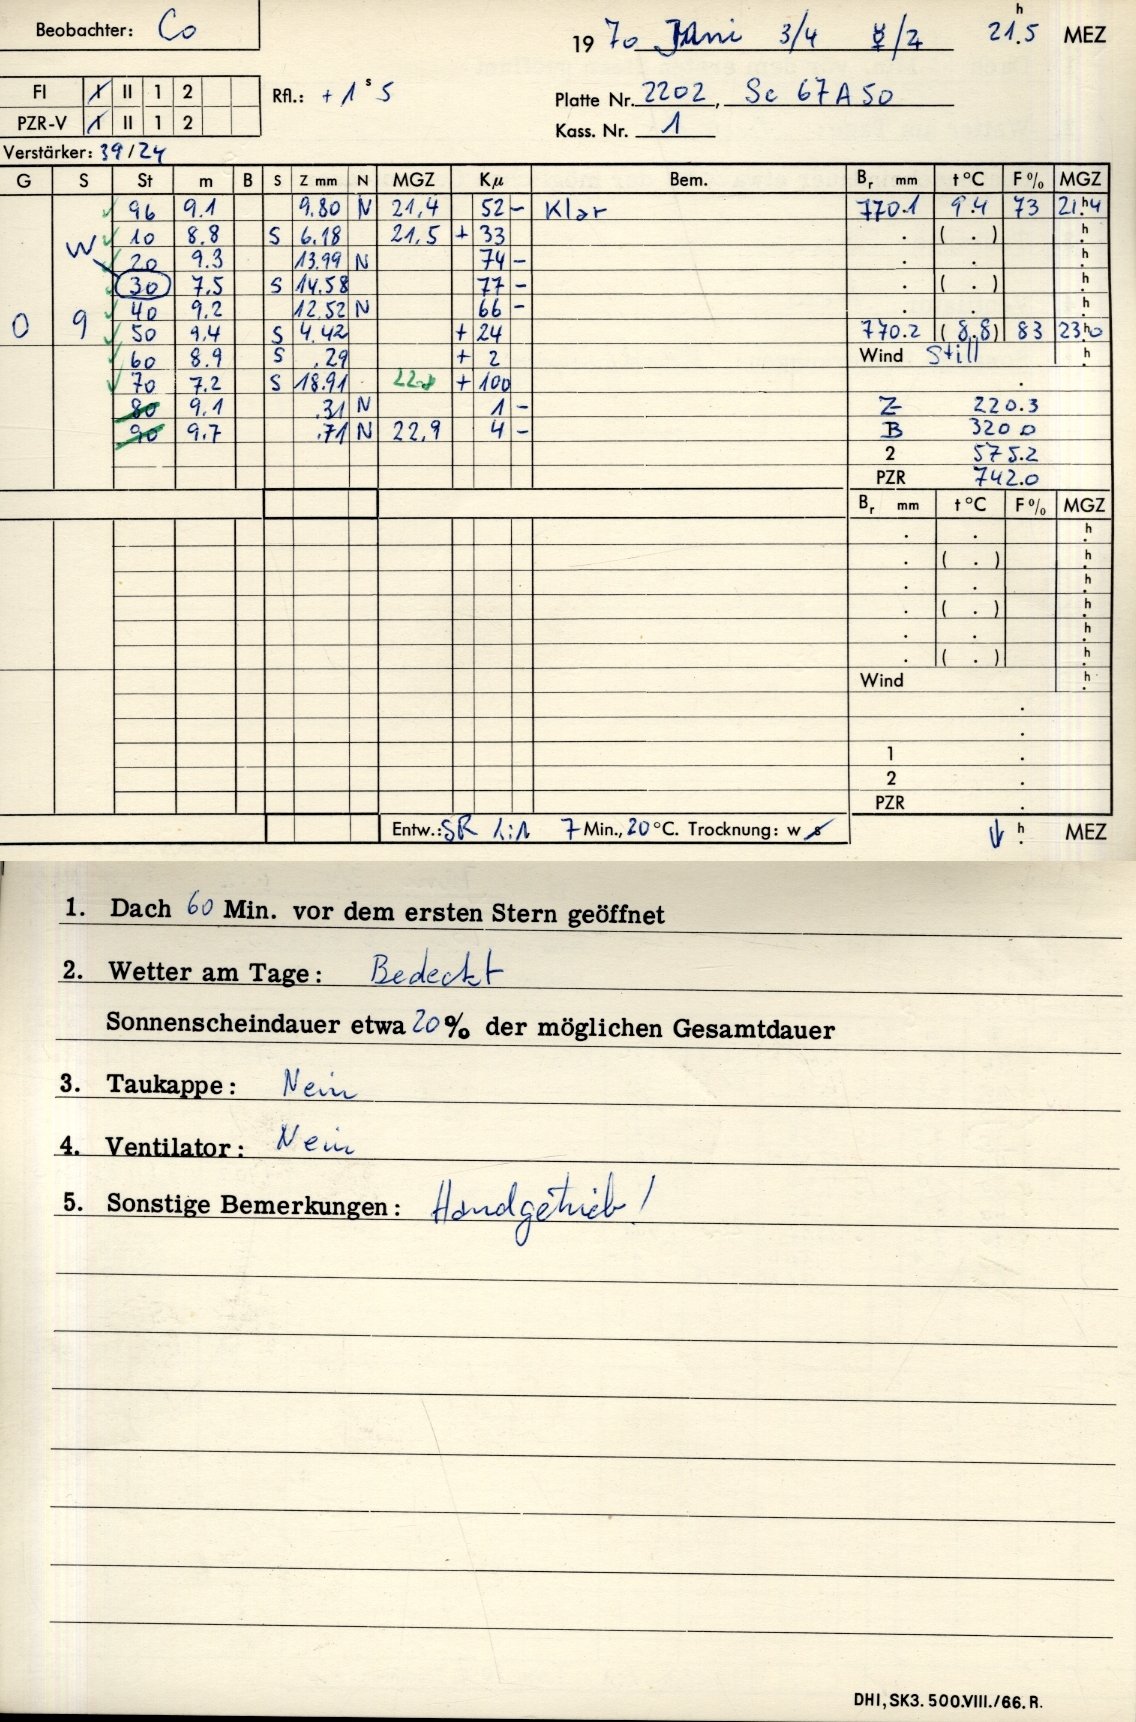 Beobachter: Co
19 70 Juni 3/4 ☿/♃ 21.5 h MEZ
FI I II 1 2
Rfl.: + 1 s 5
Platte Nr. 2202, Sc 67A50
PZR-V I II 1 2
Kass. Nr. 1
Verstärker: 39/24
G S St m B S Z mm N MGZ Kµ Bem. Br mm t °C F % MGZ
96 9.1 9.80 N 21,4 52 - Klar 770.1 9.4 73 21.h4
W 10 8.8 S 6.18 21,5 + 33 . ( . ) h
20 9.3 13.99 N 74 - . . h
30 7.5 S 14.58 77 - . ( . ) h
40 9.2 12.52 N 66 - . . h
0 9 50 9.4 S 4.42 + 24 770.2 ( 8.8) 83 23.h0
60 8.9 S .29 + 2 Wind Still h
70 7.2 S 18.91 + 100 .
80 9.1 .31 N 1 - Z 220.3
90 9.7 .71 N 22,9 4 - B 320 0
2 575.2
PZR 742.0
Br mm t °C F % MGZ
. . h
. ( . ) h
. . h
. ( . ) h
. . h
. ( . ) h
Wind h
.
.
1 .
2 .
PZR .
Entw.: SR 1:1 7 Min., 20 °C. Trocknung: w s ↓ h MEZ
1. Dach 60 Min. vor dem ersten Stern geöffnet
2. Wetter am Tage: Bedeckt
Sonnenscheindauer etwa 20 % der möglichen Gesamtdauer
3. Taukappe: Nein
4. Ventilator: Nein
5. Sonstige Bemerkungen: Handgetrieb!
DHI, SK3. 500.VIII./66. R.